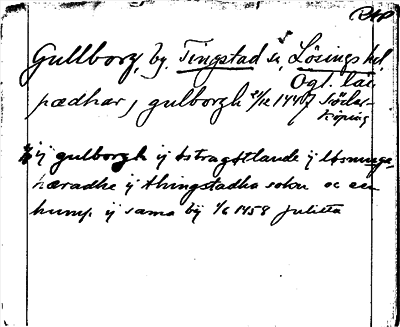 Gullborg, by, Tingstad sn, Lösings hd,
Ögl. län
pædhar j gulborgh 21/12 1447 Söder-
köping
ij gulborgh ij østragøtlande ij løsnunge
hæradhe ij thingstadha sokn oc en
hump ij sama bij 1/6 1458 Julitta